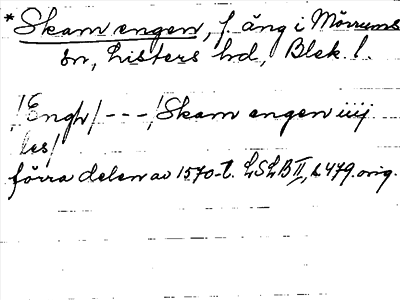 * Skam engen, f. äng i Mörrums
sn, Listers hd, Blek. l.
/Engh/ - - - /Skam engen iiij
les/
förra delen av 1570-t. LSLB II, s. 479. orig.